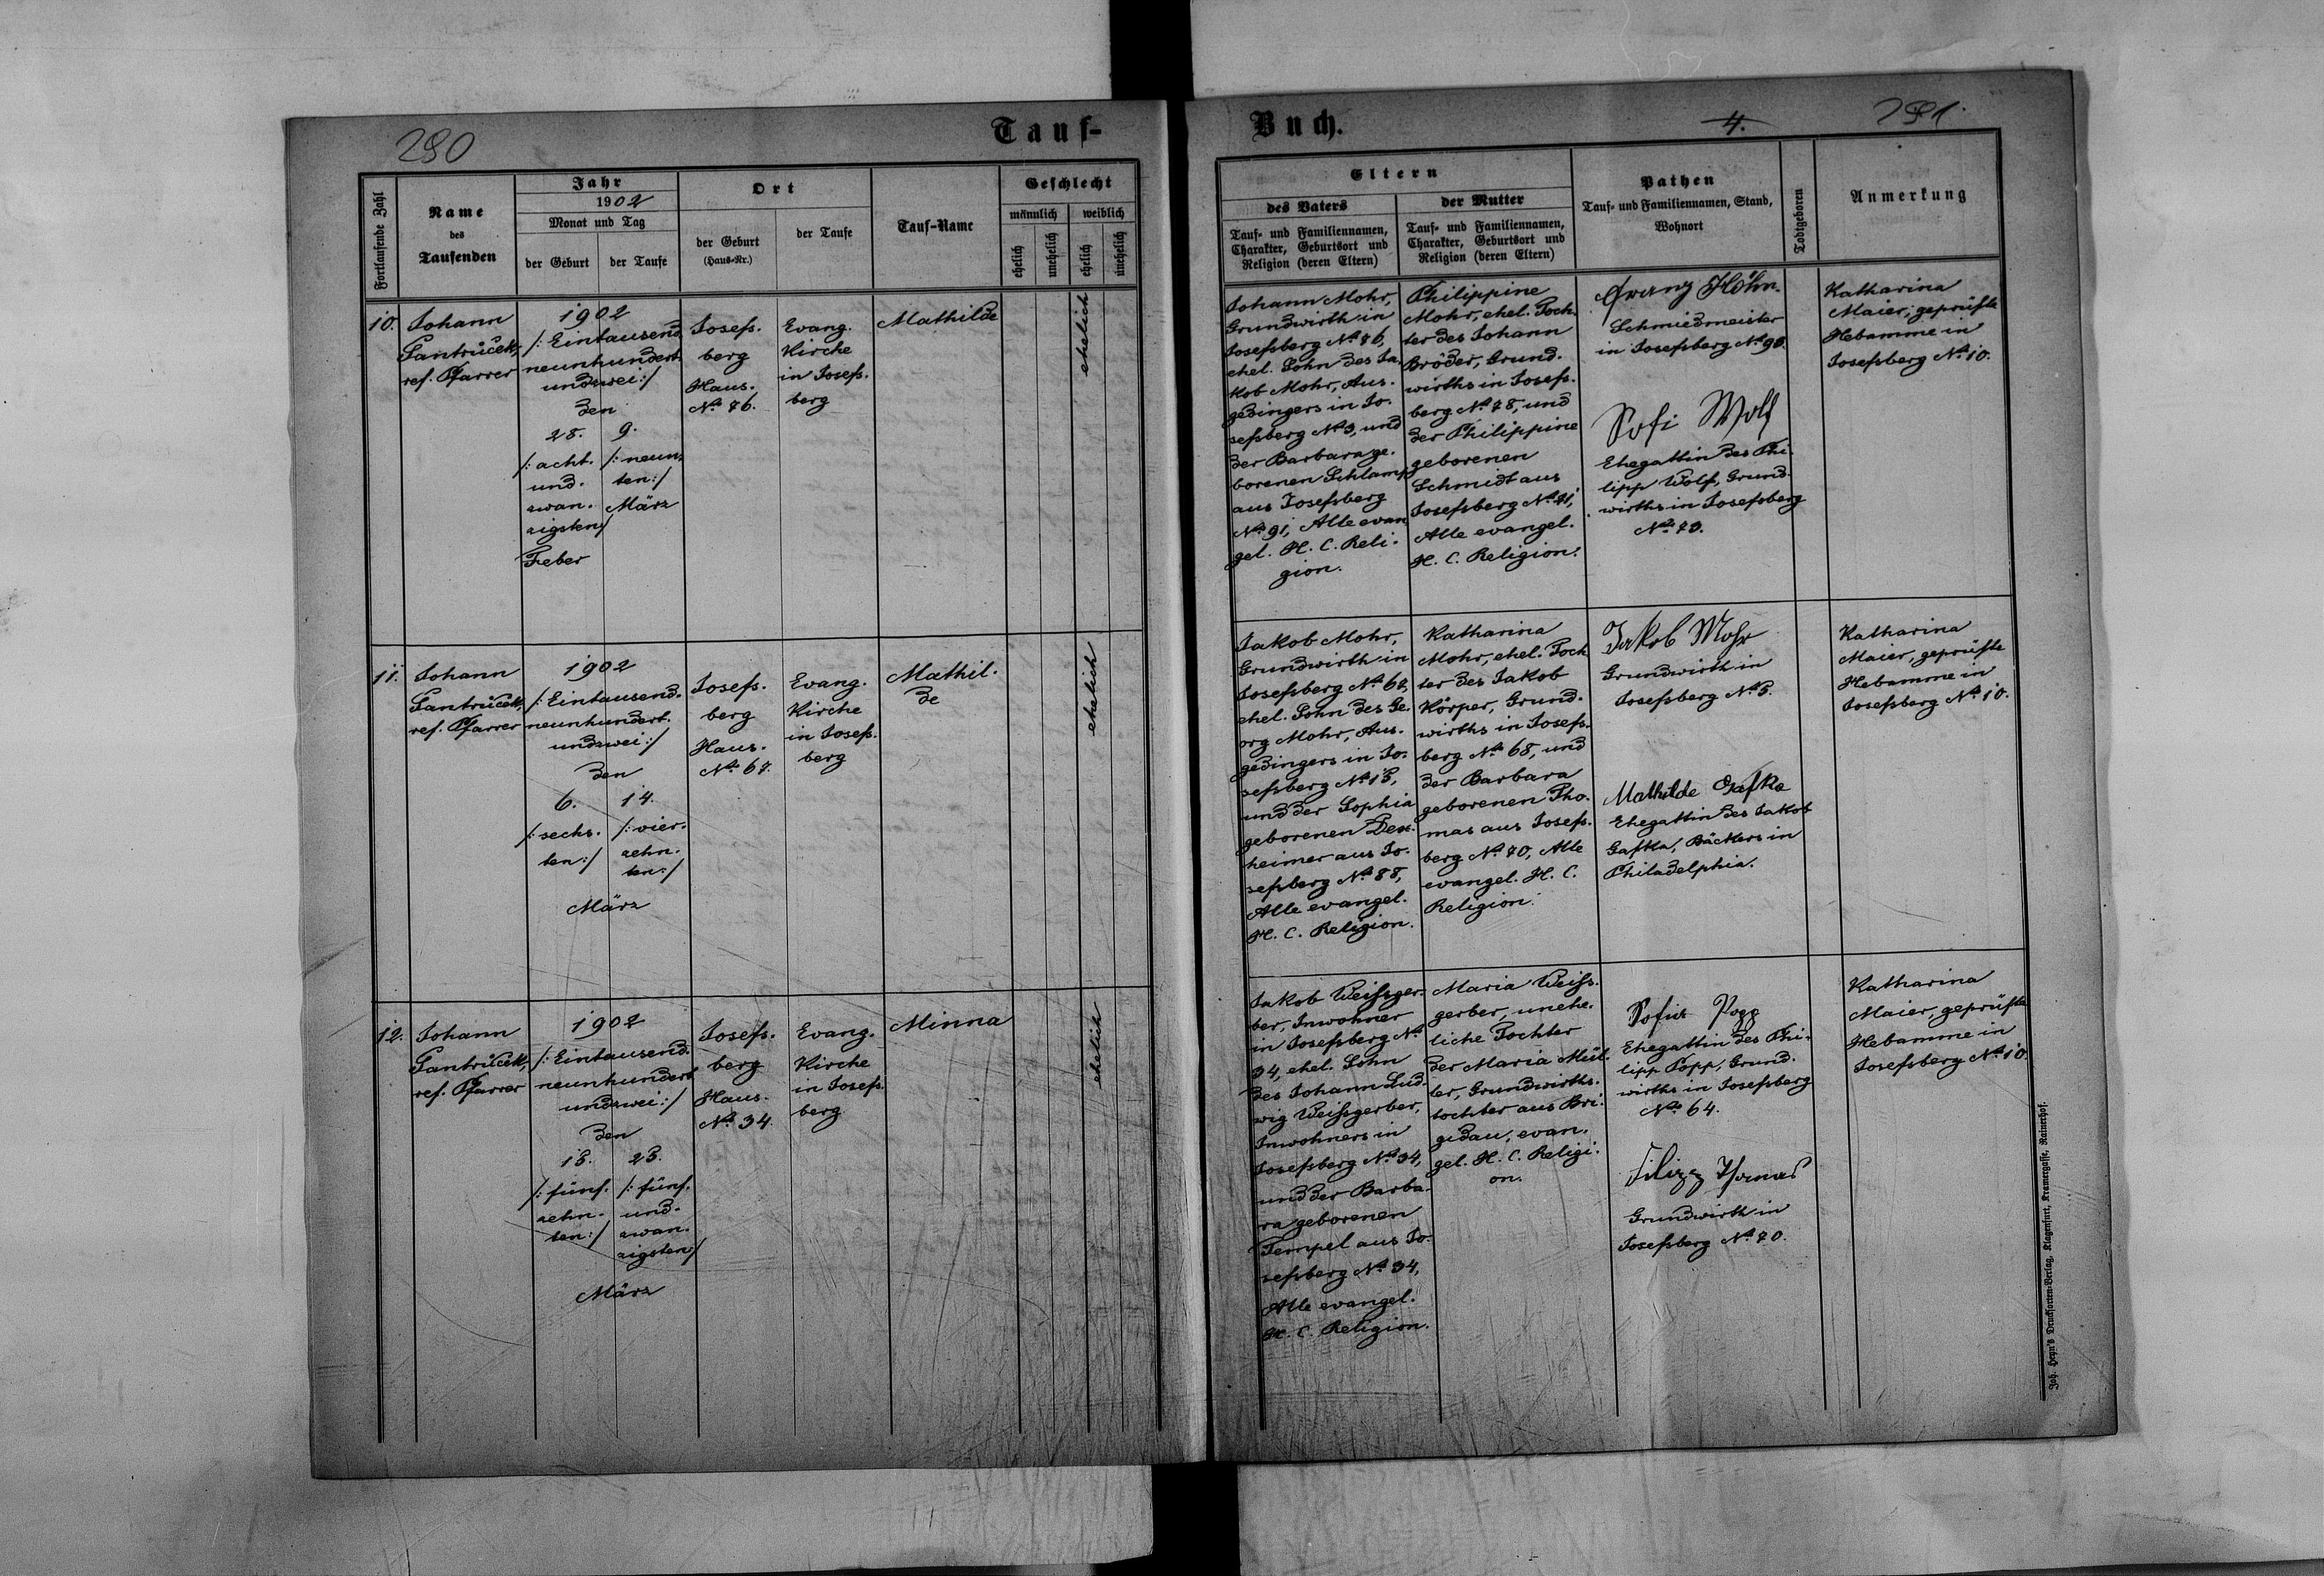 290
Tauf-
Fortlaufende Zahl
Name
des
Taufenden
Jahr
1902
Monat und Tag
der Geburt
der Taufe
Ort
der Geburt
(Haus-Nr.)
der Taufe
Tauf-Name
Geschlecht
männlich
weiblich
ehelich
unehelich
ehelich
unehelich
10.
Johann
ref. Pfarrer
1902
/: Eintausend
neunhundert
undzwei :/
den
28.
/: acht-
und-
zwan-
zigsten :/
Feber
9.
/: neun-
ten :/
März
Josefs-
berg
Haus-
No. 76.
Evang.
Kirche
in Josefs-
berg
Mathilde
ehelich
11.
Johann
ref. Pfarrer
1902
/: Eintausend-
neunhundert-
undzwei :/
den
6.
/: sechs-
ten :/
14.
/: vier-
zehn-
ten :/
März
Josefs-
berg
Haus-
No. 67.
Evang.
Kirche
in Josefs-
berg
Mathil-
de
ehelich
12.
Johann
ref. Pfarrer
1902
/: Eintausend-
neunhundert
undzwei :/
den
15.
/: fünf-
zehn-
ten :/
25.
/: fünf-
und-
zwan-
zigsten :/
März
Josefs-
berg
Haus-
No. 34.
Evang.
Kirche
in Josefs-
berg
Minna
ehelich
Buch.
4.
291.
Eltern
des Vaters
Tauf- und Familiennamen,
Charakter, Geburtsort und
Religion (deren Eltern)
der Mutter
Tauf- und Familiennamen,
Charakter, Geburtsort und
Religion (deren Eltern)
Pathen
Tauf- und Familiennamen, Stand,
Wohnort
Todtgeboren
Anmerkung
Johann Mohr,
Grundwirth in
Josefsberg No. 76,
ehel. Sohn des Ja-
kob Mohr, Aus-
gedingers in Jo-
sefsberg No. 9, und
der Barbara ge-
borenen Schlamp
aus Josefsberg
No. 91; Alle evan-
gel. H. C. Reli-
gion.
Philippine
Mohr, ehel. Toch-
ter des Johann
Bröder, Grund-
wirths in Josefs-
berg No. 78, und
der Philippine
geborenen
Schmidt aus
Josefsberg No. 71;
Alle evangel.
H. C. Religion.
Franz Höhn
Schmiedmeister
in Josefsberg No. 90.
Sofi Wolf
Ehegattin des Phi-
lipp Wolf, Grund-
wirths in Josefsberg
No. 79.
Katharina
Maier, geprüfte
Hebamme in
Josefsberg No. 10.
Jakob Mohr,
Grundwirth in
Josefsberg No. 67,
ehel. Sohn des Ge-
org Mohr, Aus-
gedingers in Jo-
sefsberg No. 15,
und der Sophia
geborenen
heimer aus Jo-
sefsberg No. 88,
Alle evangel.
H. C. Religion.
Katharina
Mohr, ehel. Toch
ter des Jakob
Körper, Grund-
wirths in Josefs-
berg No. 68, und
der Barbara
geborenen Tho-
mas aus Josefs-
berg No. 70, Alle
evangel. H. C.
Religion.
Jakob Mohr
Grundwirth in
Josefsberg No. 5.
Mathilde Gafka
Ehegattin des Jakob
Gafka, Bäckers in
Philadelphia.
Katharina
Maier, geprüfte
Hebamme in
Josefsberg No. 10.
Jakob Weissger-
ber, Inwohner
in Josefsberg No.
34, ehel. Sohn
des Johann Lud-
wig Weissgerber,
Inwohners in
Josefsberg No. 34,
und der Barba-
ra geborenen
Tempel aus Jo-
sefsberg No. 34,
Alle evangel.
H. C. Religion.
Maria Weiss-
gerber, unehe-
liche Tochter
der Maria Mül-
ler, Grundwirths-
tochter aus Bri-
gidau, evan-
gel. H. C. Religi-
on.
Sofia Popp
Ehegattin des Phi-
lipp Popp, Grund-
wirths in Josefsberg
No. 64.
Filipp Thomas
Grundwirth in
Josefsberg No. 70.
Katharina
Maier, geprüfte
Hebamme in
Josefsberg No. 10.
Joh. Heyn's Drucksorten-Verlag, Klagenfurt, Kramergasse, Rainerhof.